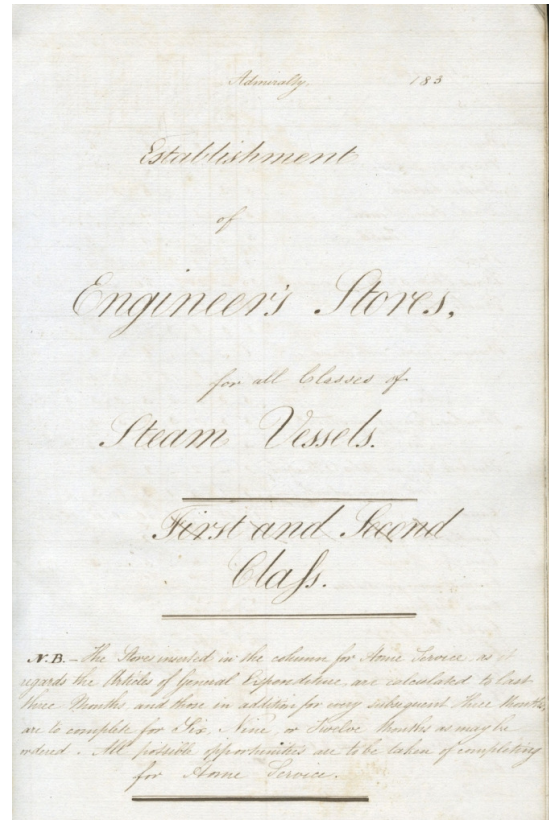 Admiralty. 183
Establishment
of
Engineer's Stores,
for all Classes of
Steam Vessels.
First and Second
Class.
N.B. – The Stores inserted in the column for Home Service, as it
regards the Articles of Annual Expenditure, are calculated to last
three Months, and those in addition for every subsequent three Months,
are to complete for Six, Nine, or Twelve Months as may be
ordered. All possible opportunities are to be taken of completing
for Home Service.